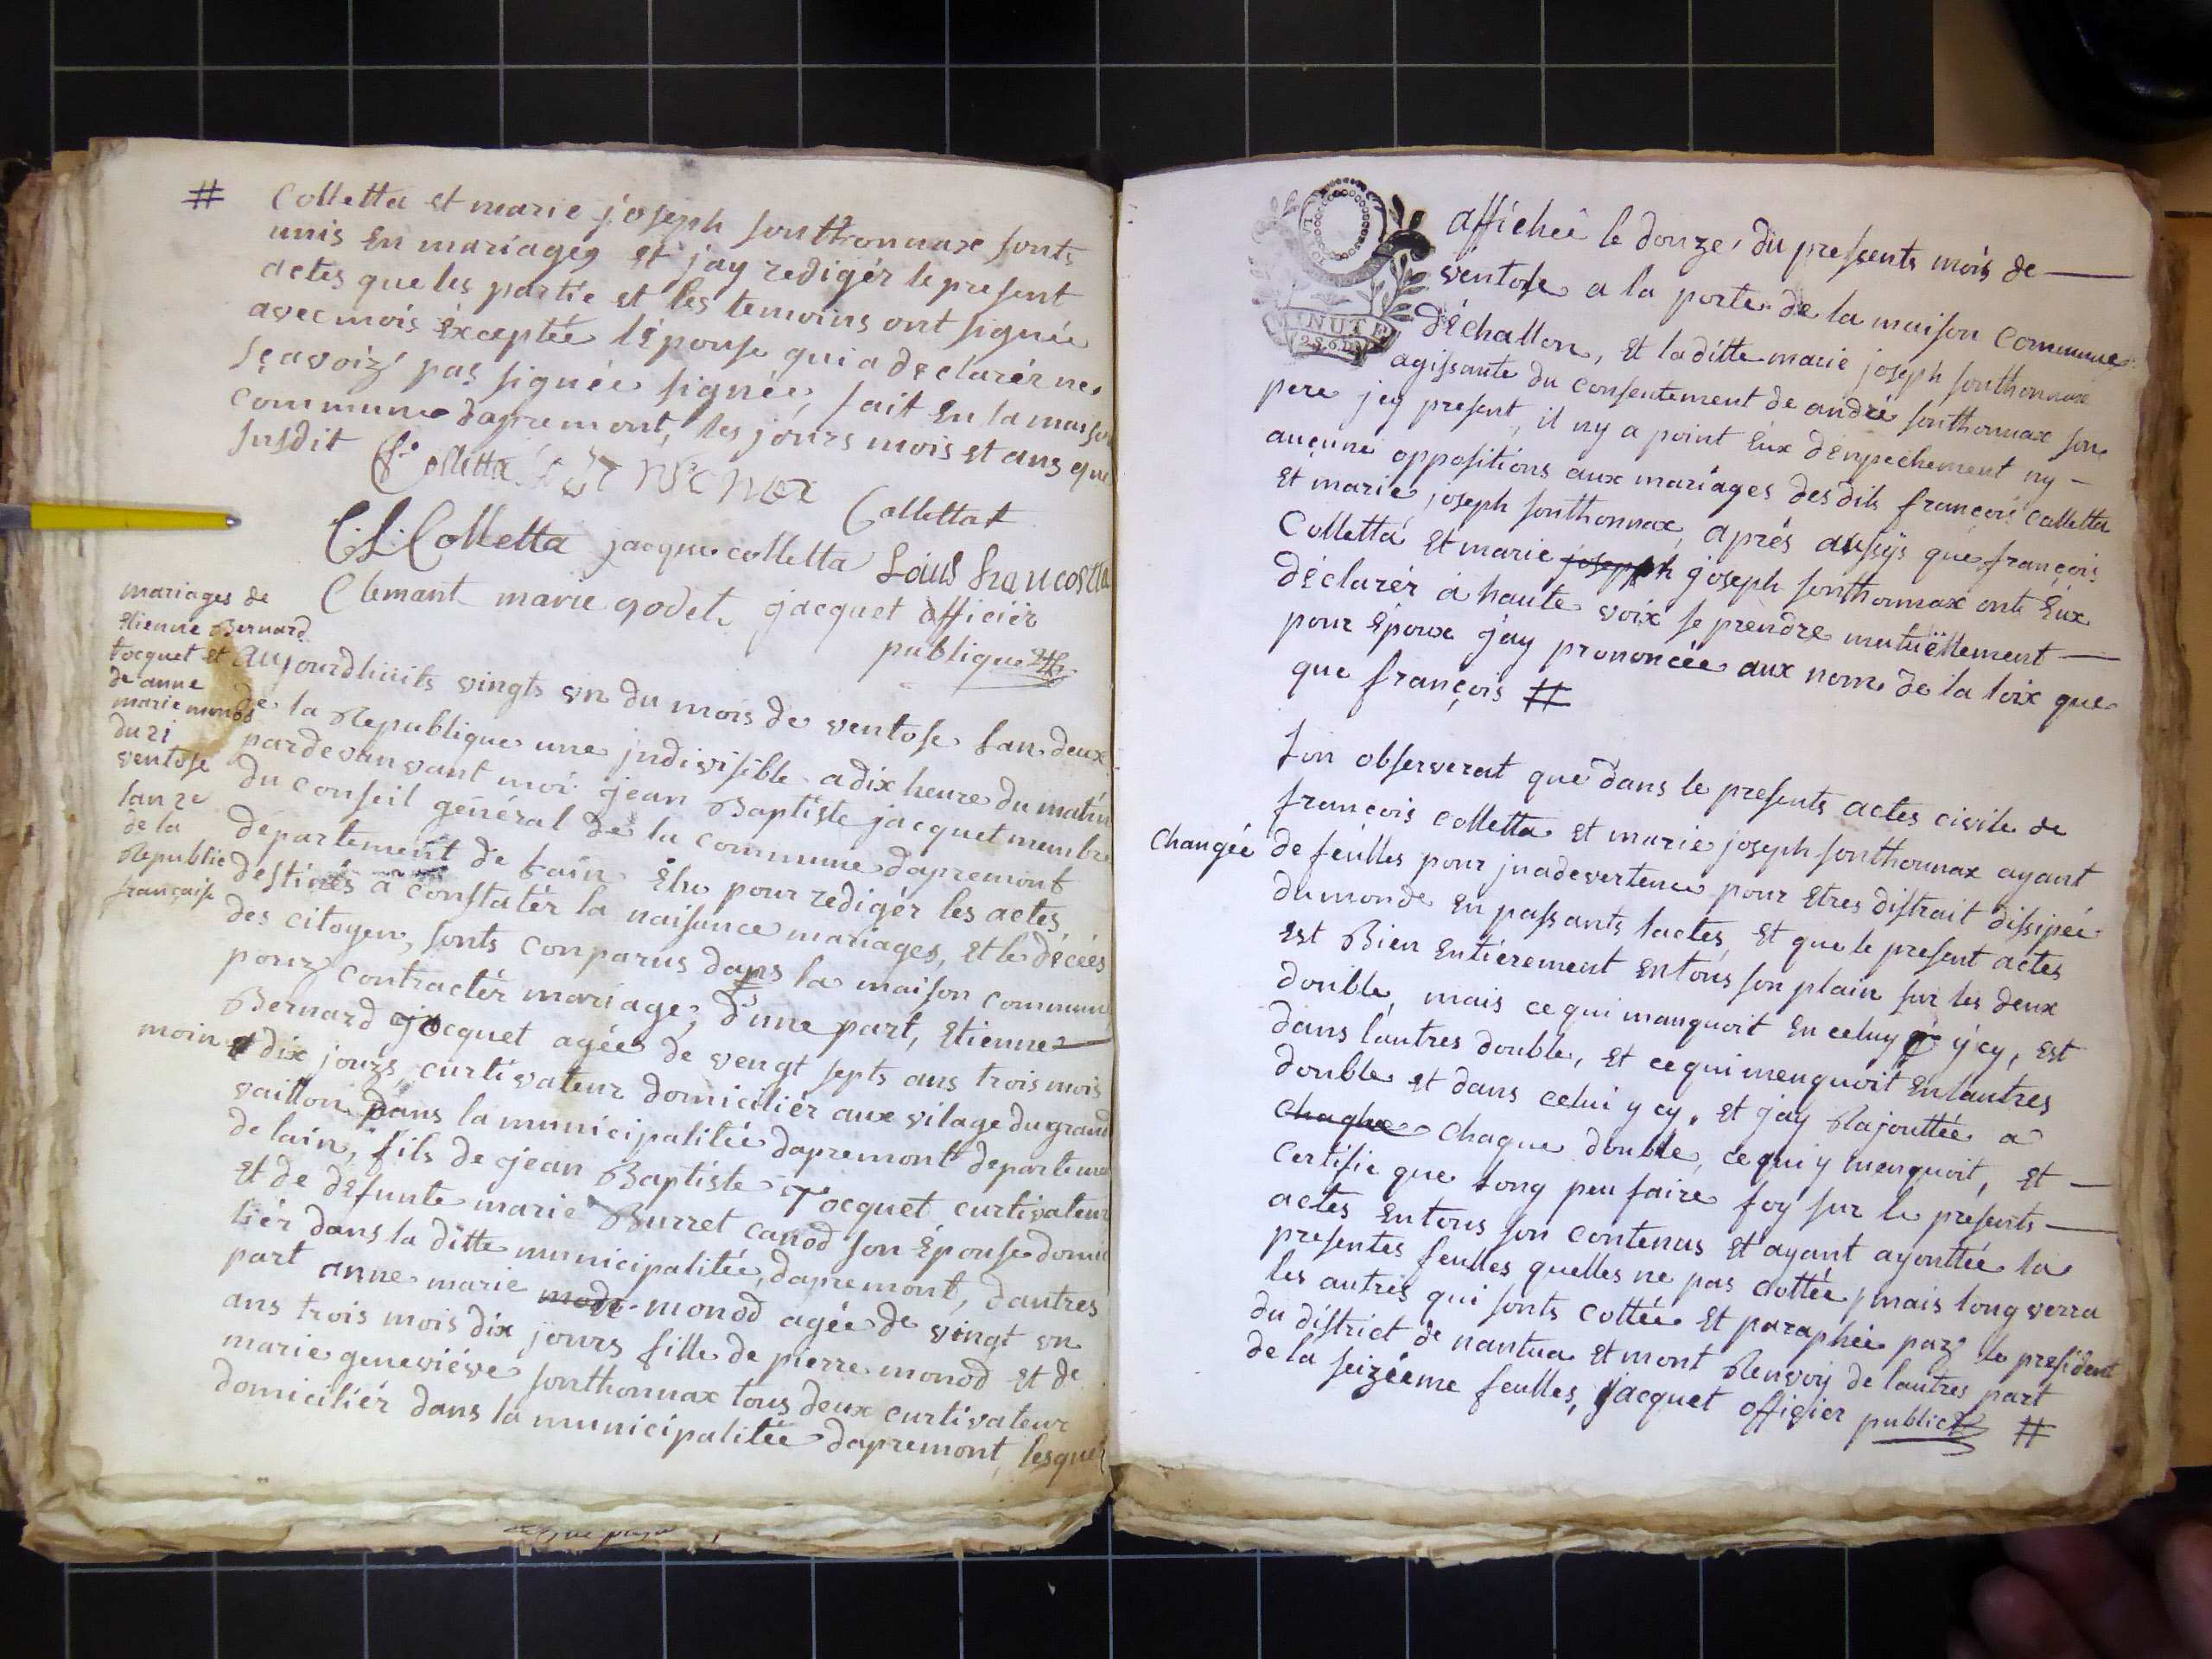 # Colletta et marie joseph sonthonnax sonts
unis En mariages et j'ay redigér le present
actes que les partie et les temoins ont signée
avec mois éxceptée lÉpouse qui a déclarér ne
sçavoir pas signée signée, fait En la maison
commune dapremont, les jours mois et ans que
susdit
Colletta
Collettat
C.L. Colletta jacque colletta Louis
Clemant marie godet jacquet officiér
publique
mariages de
Etienne Bernard
tocquet et
de anne
marie monod
du 21
ventose
lan 2e
de la
Republie
française
aujourdhuits vingts un du mois de ventose lan deux
de la Republique une jndivisible a dix heure du matin
pardevanvant moi jean Baptiste jacquet membre
du conseil général de la commune dapremont
département de lain Elu pour redigér les actes,
destinés a constatér la naisance mariages, et le décées
des citoyen, sonts conparus dans la maison commune
pour contractér mariage, d'une part, Etienne
Bernard jocquet agée de vengt septs ans trois mois
moin et dix jours, curtivateur domiciliér aux vilage du grand
vaillon dans la municipalitée dapremont departeme
de lain, fils de jean Baptiste Tocquet curtivateur
Et de défunte marie Burret canod son Épouse domic
liér dans la ditte municipalitée, dapremont, dautres
part anne marie mode monod agée de vingt un
ans trois mois dix jours fille de pierre monod et de
marie geneviéve sonthonnax tous deux curtivateur
domiciliér dans la municipalitée dapremont, lesquel
MINUTE
2 S. 6 D.
affichéé le douze, du presents mois de
ventose a la porte de la maison Commune
déchallon, Et la ditte marie joseph sonthonnax
agissante du consentement de andré sonthonnax son
pere jcy present, il ny a point Eux dénpechement ny
aucune oppositions aux mariages des dits françois Colletta
Et marie joseph sonthonnax, après aussÿs que françois
Colletta Et marie joseph joseph sonthonnax ont Eux
déclarér a haute voix se prendre mutuëllement
pour Époux j'ay prononcée aux nom de la loix que
que françois #
lon observerat que dans le presents actes civile de
francois colletta et marie joseph sonthonnax ayant
changée de feulles pour jnadevertence pour Etres distrait dissipée
du monde En passants lactes, Et que le present actes
Est Bien Entiérement En tous son plain sur les deux
double, mais ce qui manquoit En celuy y'cy, Est
dans l'autres double, et ce qui menquoit En lautres
double et dans celui y cy, et j'ay Rajouttée a
chaque chaque double, ce qui y menquoit, Et
Certifie que long peu faire foy sur le presents
actes En tous son contenus Et ayant ajouttée la
presentes feulles quelles ne pas cottée, mais long verra
les autres qui sonts cottée Et paraphée par le president
du district de nantua Et mont Renvoij de lautres part
de la seiziéme feulles, Jacquet officier public #